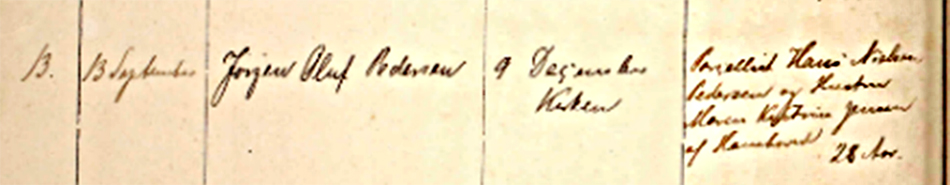 13. 13 September Jørgen Oluf Pedersen 9 December Parcellist Hans Nielsen
Kirken Pedersen og Hustru
Maren Kjestine Jensen
af 28 Aar.